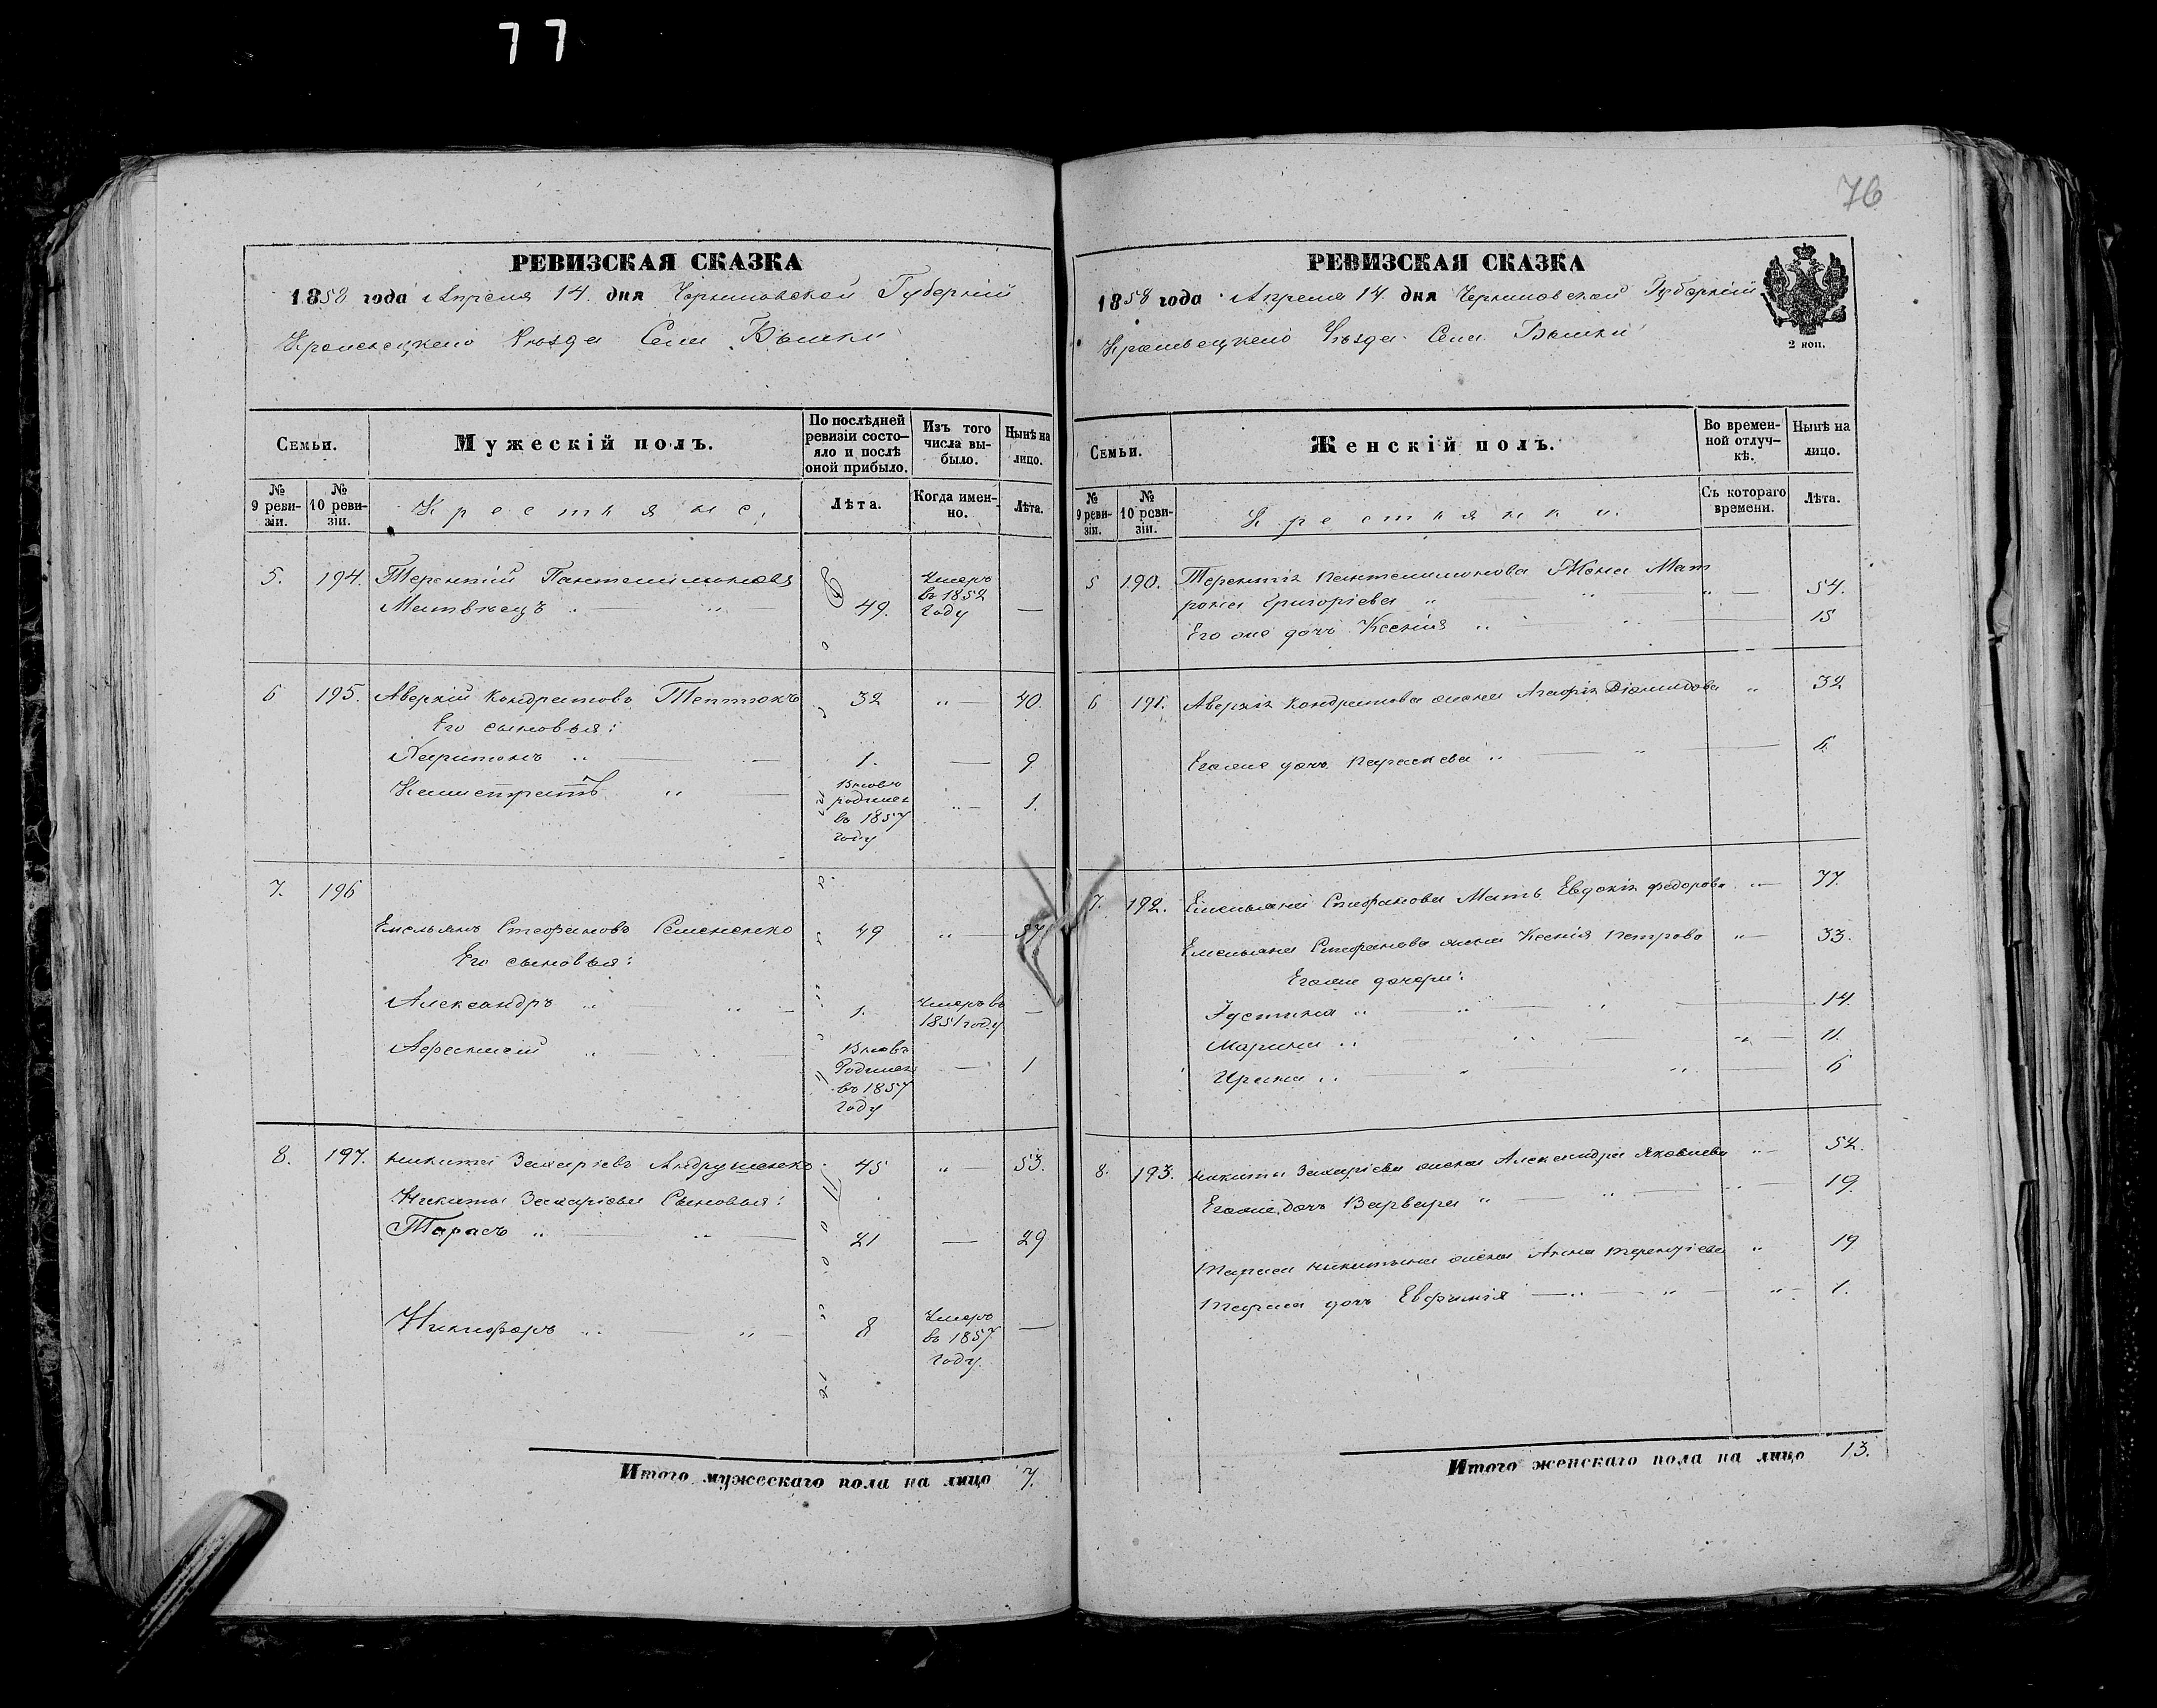 77
76
РЕВИЗСКАЯ СКАЗКА
1858 года Апреля 14. дня Черниговской Губерніи
Кролевецкаго Уезда Села Быт
Семьи.
Мужескій полъ.
По послѣдней ревизіи состо-
яло и послѣ
оной прибыло.
Изъ того
числа вы-
было.
Нынѣ на
лицо.
№
9 реви-
зіи.
№
10 реви-
зіи.
Крестьяне.
Лѣта.
Когда имен-
но.
Лѣта.
5. 194. Терентій Пантелимоновъ
49. Умеръ въ 1852 году —
6 195. Аверкій Кондратовъ 32 „ — 40.
Его сыновья:
Харитонъ „ — 1. — 9
Калистратъ „ — Вновь рожденъ въ 1857 году „ — 1.
7. 196
Емельянъ Стефановъ Семененко 49 „ — 57
Его сыновья:
Александръ „ „ — 1. Умеръ въ 1851 году —
Афанасій „ — Вновь Рожденъ въ 1857 году — 1
8. 197. Никита Захаріевъ Андрушенко 45 „ 53.
Никиты Захаріева Сыновья:
Тарасъ „ — „ — 21 — 29
Никифоръ „ — „ — 8 Умеръ въ 1857 году. —
Итого мужескаго пола на лицо 7.
РЕВИЗСКАЯ СКАЗКА
1858 года Апреля 14. дня Черниговской Губерніи
Кролевецкаго Уезда Села
2 коп.
Семьи.
Женскій полъ.
Во времен-
ной отлуч-
кѣ.
Нынѣ на
лицо.
№
9 реви-
зіи.
№
10 реви-
зіи.
Крестьянки.
Съ котораго
времени.
Лѣта.
5 190. Терентія Пантелимонова Жена Мат
рона Григоріева „ — „ — „ — 54.
Его же дочь Ксенія „ „ — 15
6 191. Аверкія Кондратова жена Агафія Діомидова „ 32
Его же дочь Параскева „ — „ — 6.
7. 192. Емельяна Стефанова Мать Евдокія Федорова „ — 77.
Емельяна Стефанова жена Ксенія Петрова „ — 33.
Его же дочери:
Іустина „ — „ — „ — 14.
Марина „ — „ — „ — 11.
Ирина „ — „ — „ — 6
8. 193. Никиты Захаріева жена Александра Яковлева „ — 52.
Его же дочь Варвара „ — „ — „ — 19.
Тараса Никитина жена Анна Терентіева „ 19
Тараса дочь Евфимія — „ — „ — „ — 1.
Итого женскаго пола на лицо 13.